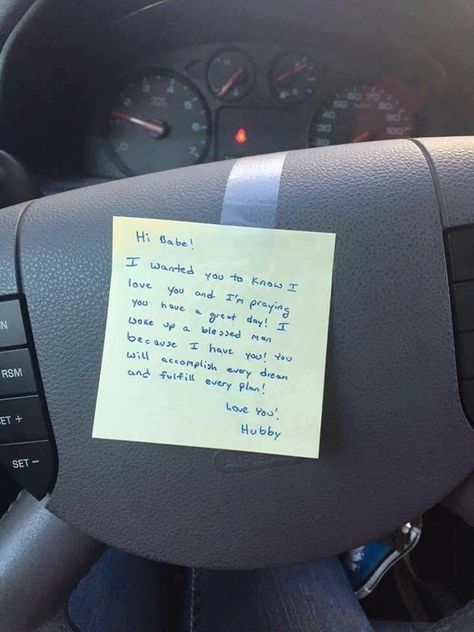 Hi Babe!
I wanted you to know I
love you and I'm praying
you have a great day! I
woke up a blessed man
because I have you! You
will accomplish every dream
and fulfill every plan!
Love You!
Hubby
RSM
SET +
SET -